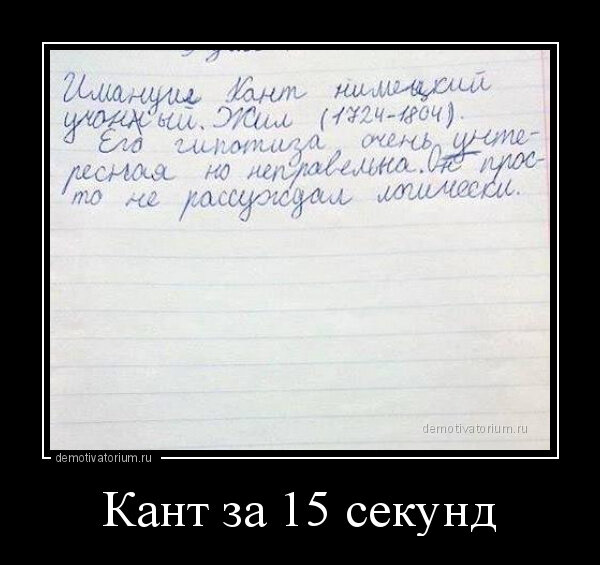 Имануил Кант нимецкий
учонный. Жил (1724-1804).
Его гипотиза очень унте-
ресная но неправельна. Он прос-
то не рассуждал логически.
demotivatorium.ru
demotivatorium.ru
Кант за 15 секунд